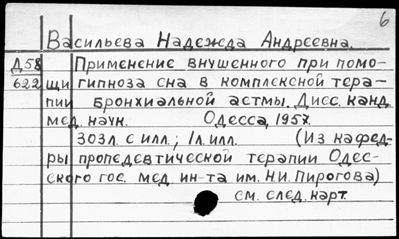 6
Васильева Надежда Андреевна.
Д58 Применение внушенного при помо-
622 щи гипноза сна в комплексной тера-
пии бронхиальной астмы. Дисс. канд.
мед. наук. Одесса, 1957.
303л. с илл.; 1л. илл. (Из кафед-
ры пропедевтической терапии Одес-
ского гос. мед. ин-та им. Н.И. Пирогова)
см. след. карт.